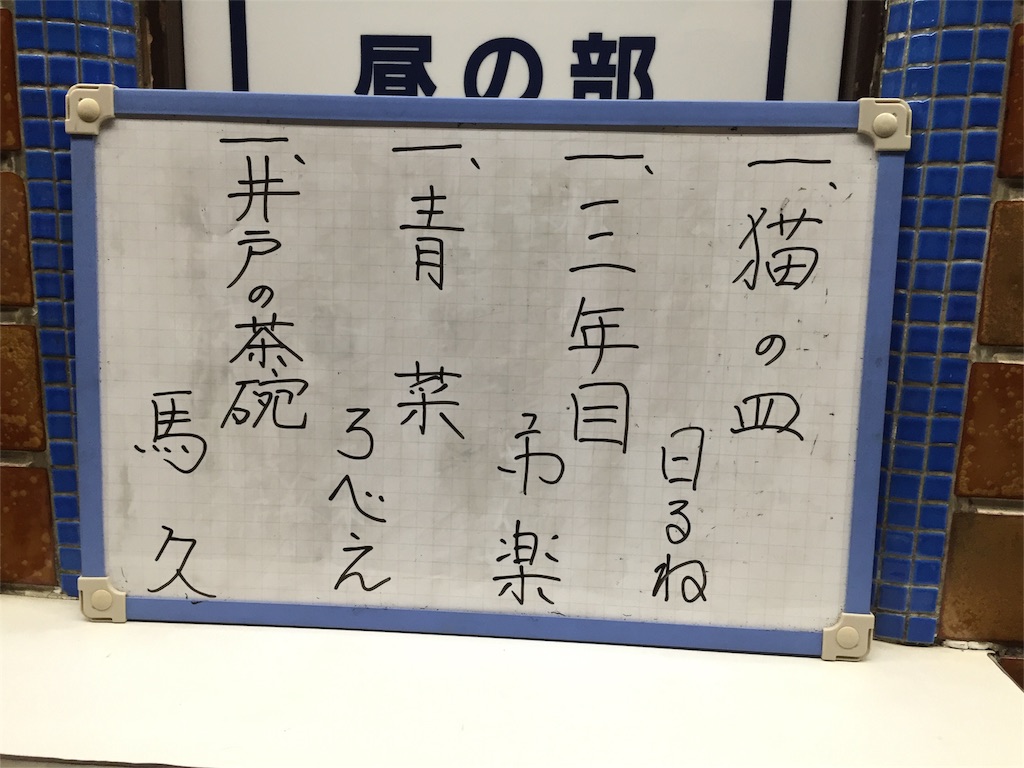 昼の部
一、猫の皿
日るね
一、三年目
市楽
一、青菜
ろべえ
一、井戸の茶碗
馬久